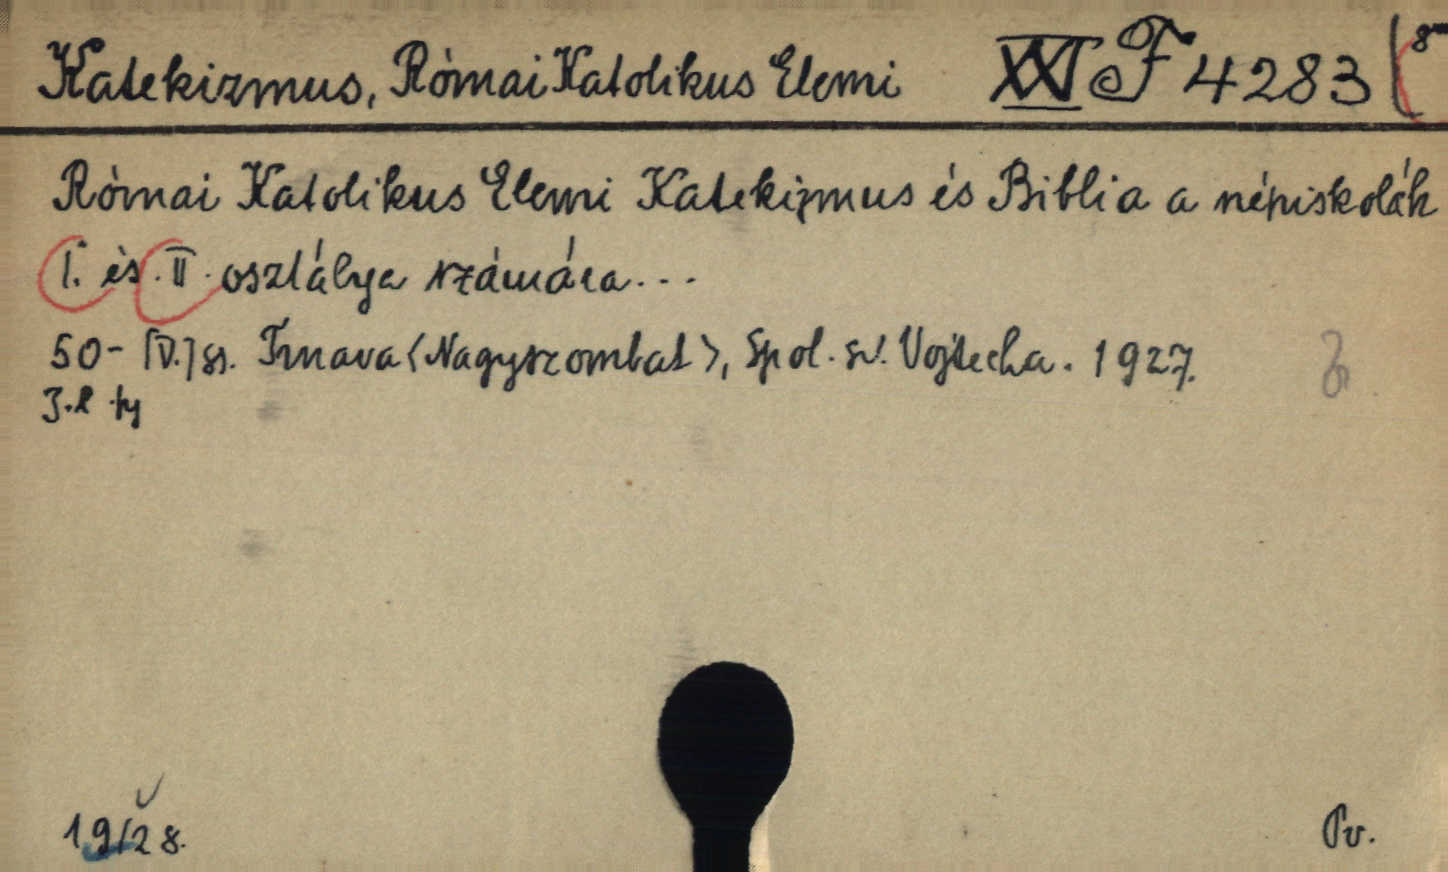 Katekizmus, Római Katolikus Elemi XXF 4283
Római Katolikus Elemi Katekizmus és Biblia a népiskolák
I. és II. osztálya számára...
50-[V.] Trnava <Nagyszombat>, Spol. sv. Vojtecha. 1927.
1928.
Pv.